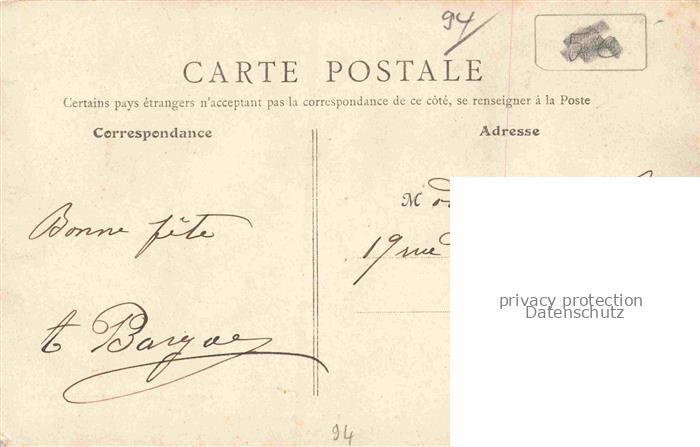 94
CARTE POSTALE
Certains pays étrangers n'acceptant pas la correspondance de ce côté, se renseigner à la Poste
Correspondance
Adresse
M
Bonne fête
19 rue
privacy protection
Datenschutz
94